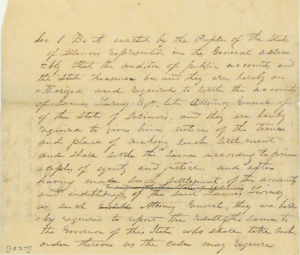 Sec 1 Be it enacted by the People of the State
of Illinois represented in the General assem
=bly, that the auditor of public accounts and
the State Treasurer be and they are hereby au
=thorized and required to settle the accounts
of James Turney Esqr, late Attorney General of
of the State of Illinois, and they are hereby
required to give him notice of the time
and place of making such settlement
and shall settle the same according to prin
=ciples of equity and justice, and after
having made such settlement of the accounts
and indebtedness of the said Turney
as such Attorney General, they are here
=by required to report the same to
the Governor of this State who shall take such
order thereon as the case may require